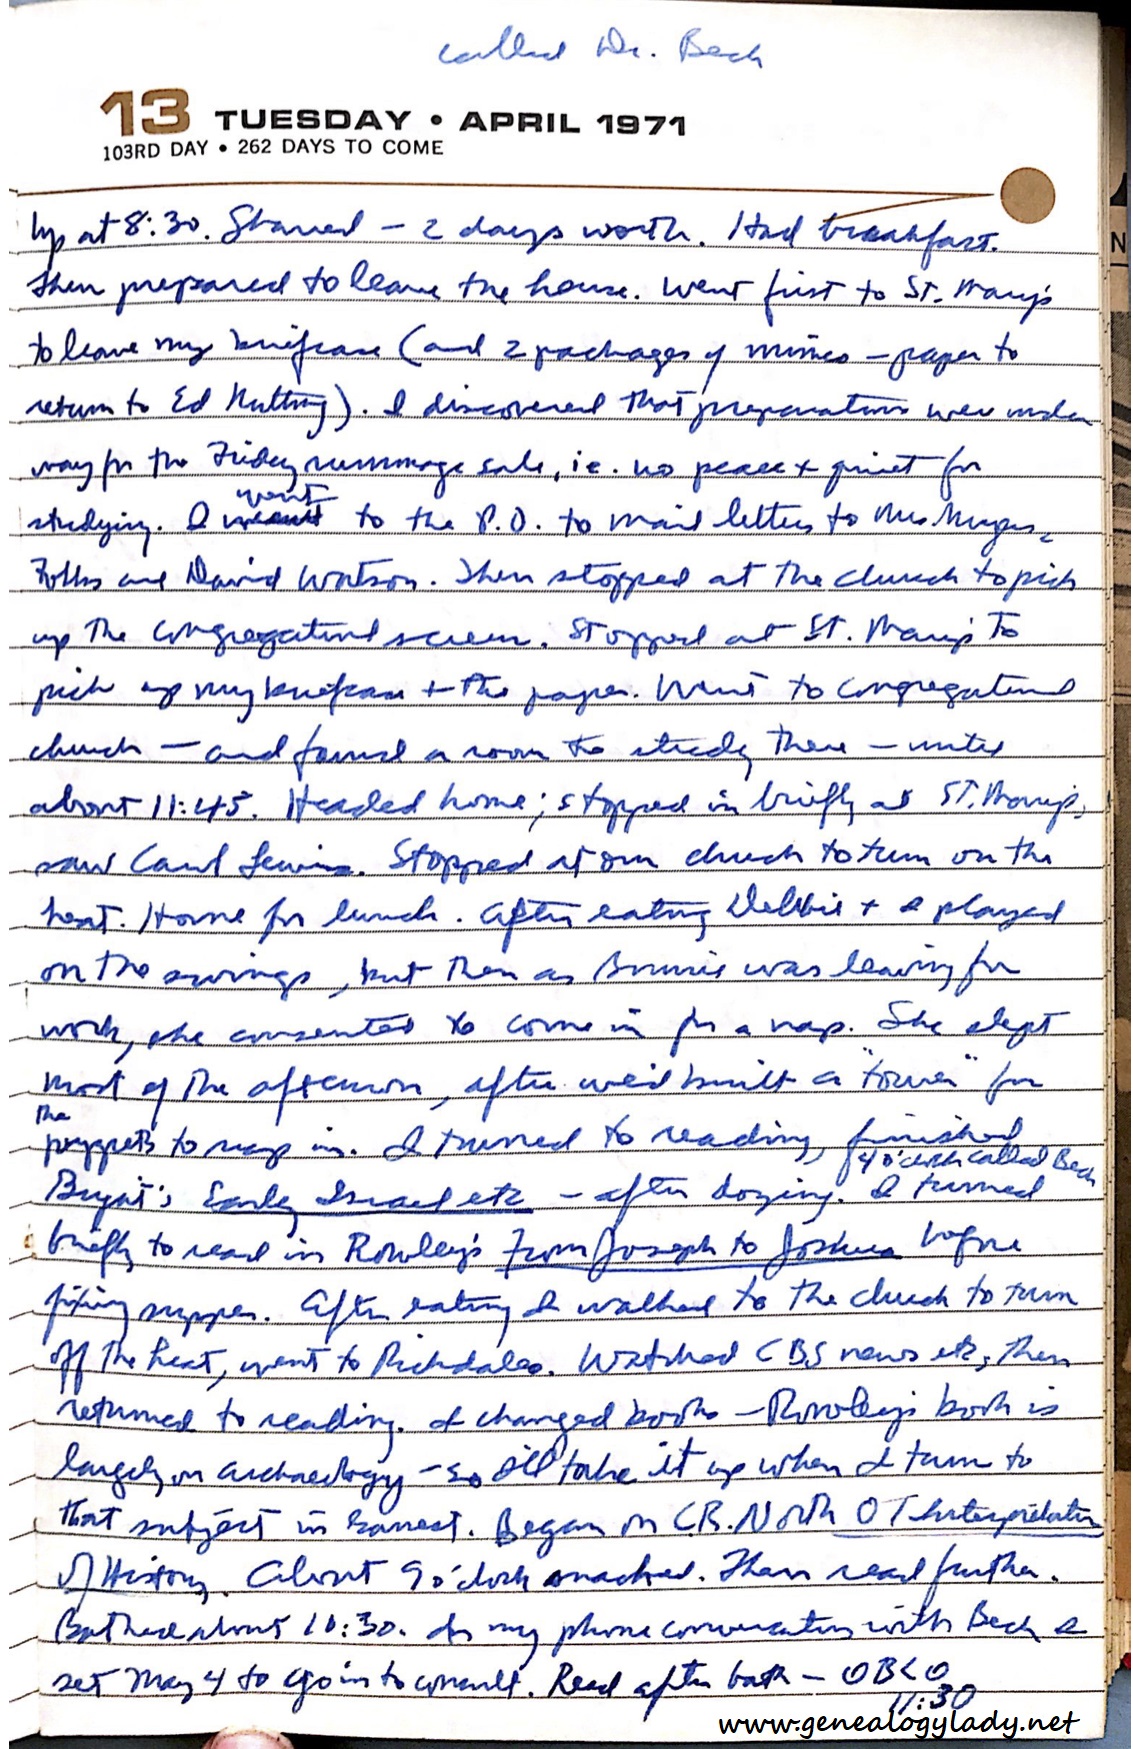 called Dr. Beck
13 TUESDAY • APRIL 1971
103RD DAY • 262 DAYS TO COME
Up at 8:30. Shaved – 2 days worth. Had breakfast.
Then prepared to leave the house. Went first to St. Mary's
to leave my briefcase (and 2 packages of mimeo – paper to
return to Ed Nutting). I discovered that preparations were under
way for the Friday rummage sale, i.e. no peace + quiet for
studying. I went to the P.O. to mail letters to Mrs.
Folks and David Watson. Then stopped at the church to pick
up the congregational screen. Stopped at St. Mary's to
pick up my briefcase + the paper. Went to congregational
church – and found a room to study there – until
about 11:45. Headed home; stopped in briefly at St. Mary's,
saw Carol Lewis. Stopped at our church to turn on the
heat. Home for lunch. After eating Debbie + I played
on the swings, but then as Bonnie was leaving for
work, she consented to come in for a nap. She slept
most of the afternoon, after we'd built a "tower" for
the
puppets to nap in. I turned to reading, finished
4 o'clock called Beck
Bright's Early Israel etc – after dozing. I turned
briefly to read in Rowley's From Joseph to Joshua before
fixing supper. After eating I walked to the church to turn
off the heat, went to Richdales. Watched CBS news etc, then
returned to reading. I changed books – Rowley's book is
largely on archaeology – so I'll take it up when I turn to
that subject in earnest. Began on C.R. North OT Interpretation
of History. About 9 o'clock snacked. Then read further.
Bathed about 10:30. In my phone conversation with Beck I
set May 4 to go in to consult. Read after bath – OBLO
11:30
www.genealogylady.net